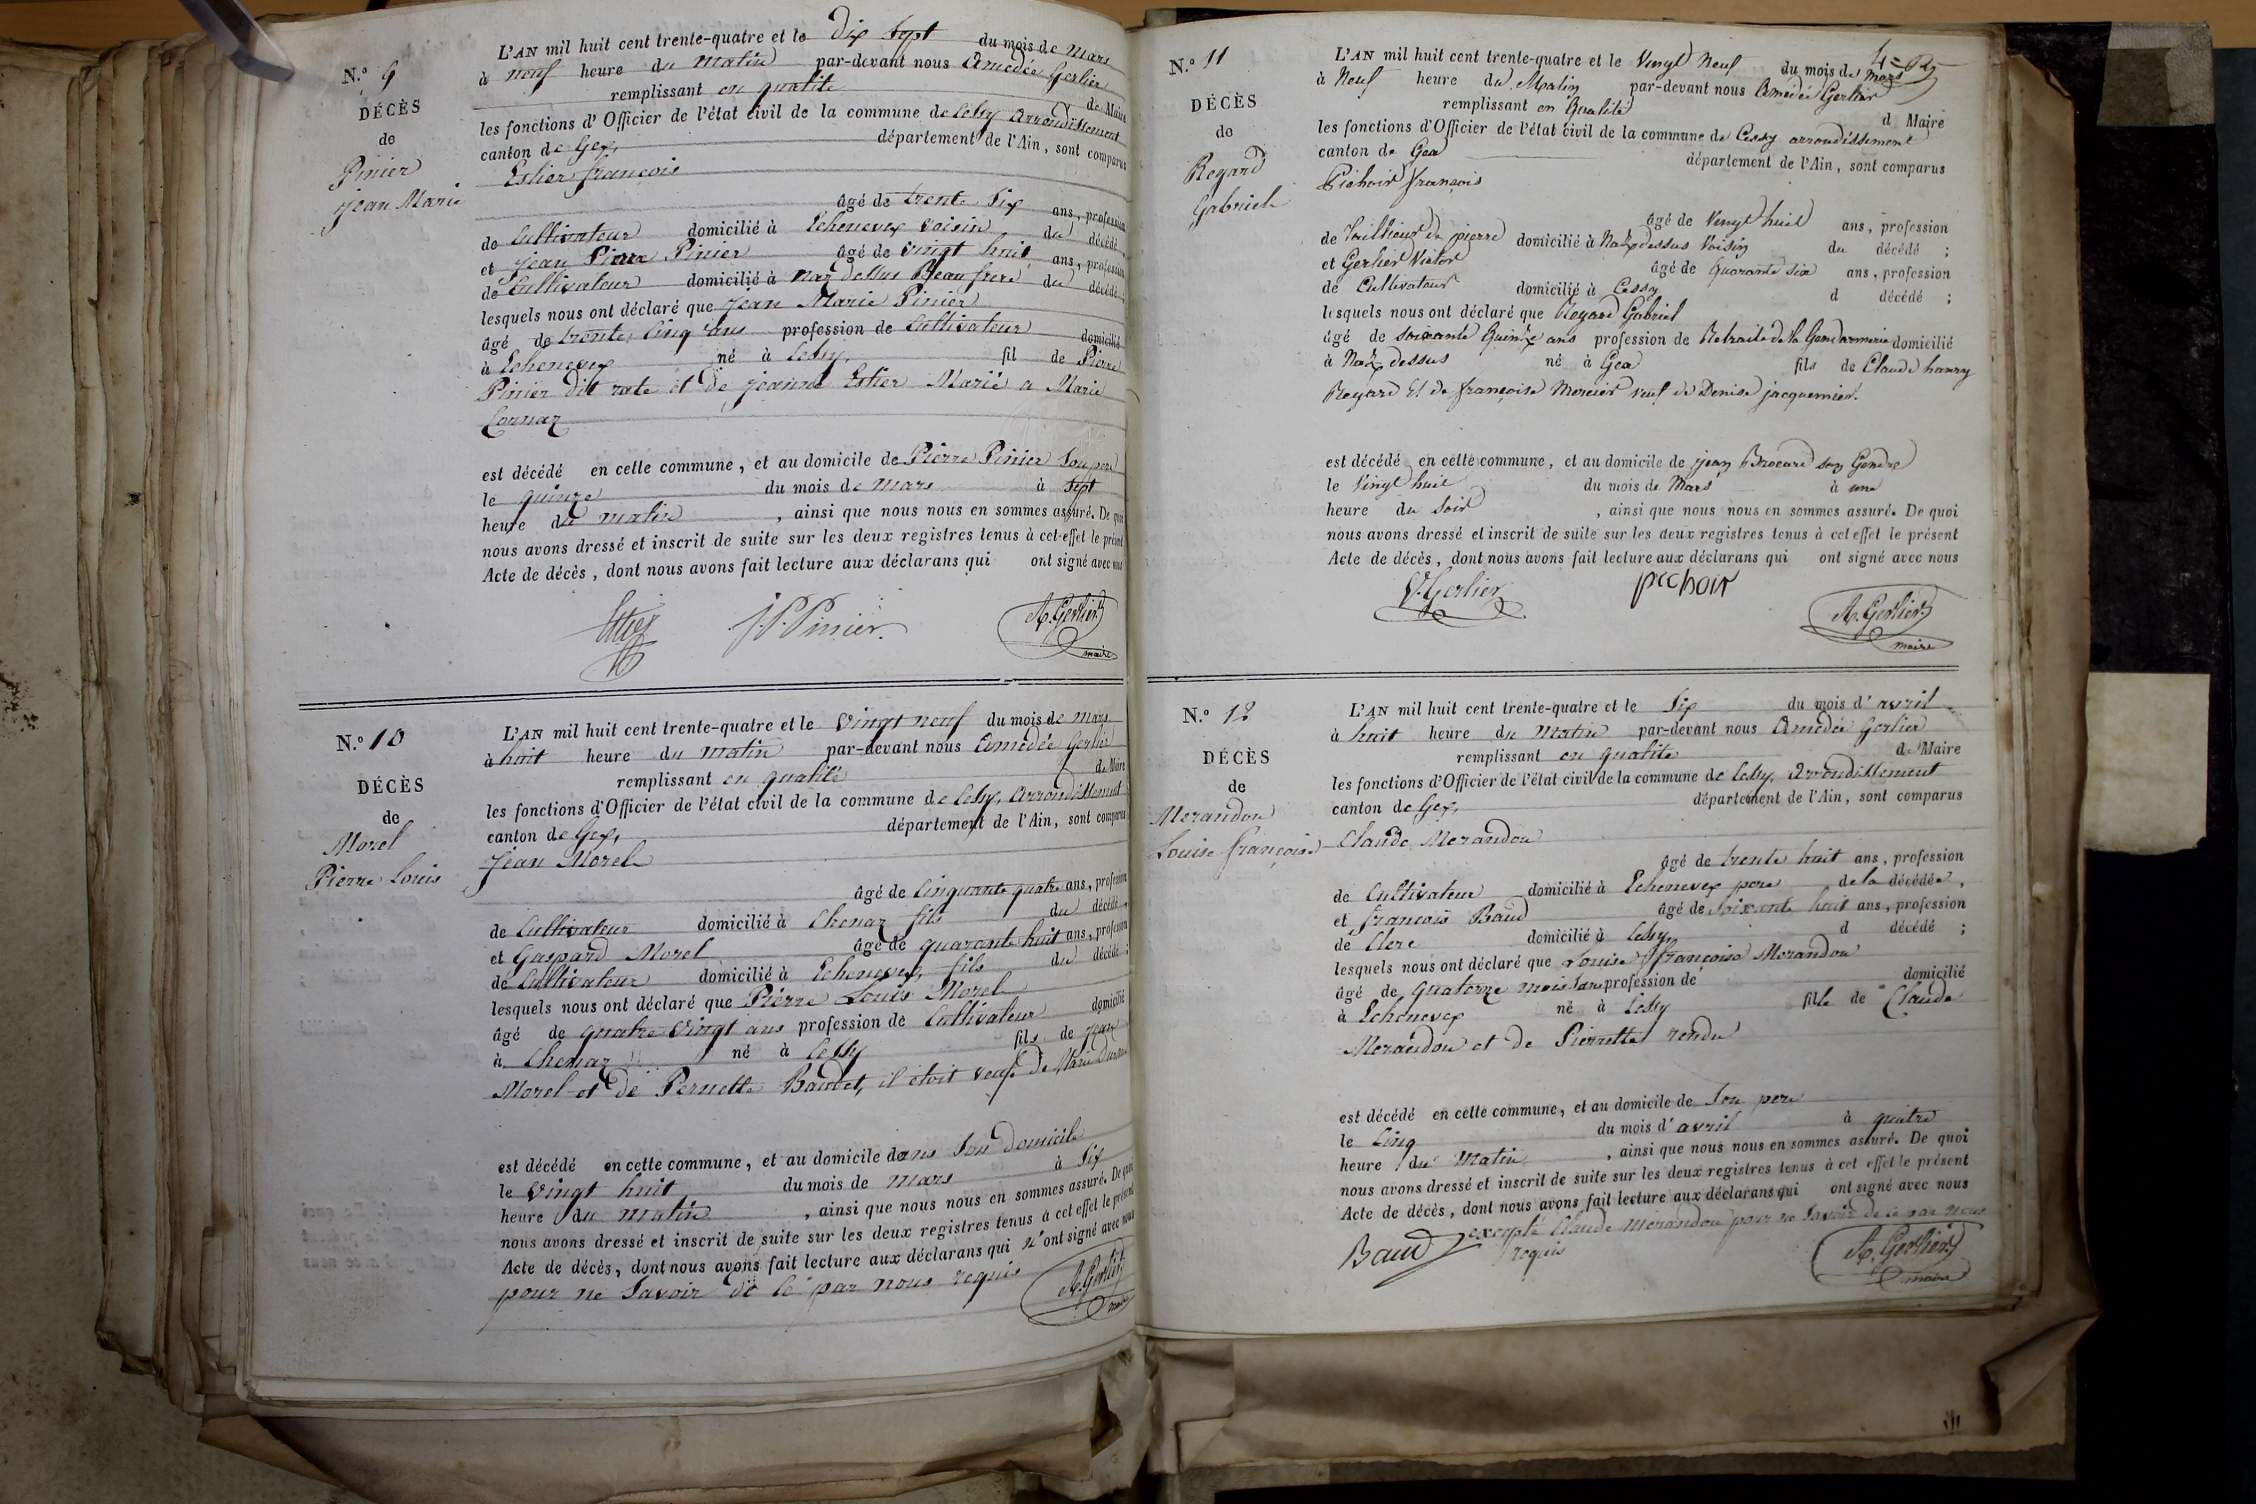 N.° 9
DÉCÈS
de
Pinier
Jean Marie
L'AN mil huit cent trente-quatre et le dix sept du mois de Mars
à neuf heure du matin par-devant nous Amedée Gerlier
remplissant en qualité de Maire
les fonctions d'Officier de l'état civil de la commune de Cessy Arrondissement
canton de Gex, département de l'Ain, sont comparus
Estier françois
âgé de trente six ans, profession
de Cultivateur domicilié à Echenevex voisin du décédé
et jean Pierre Pinier âgé de vingt huit ans, profession
de Cultivateur domicilié à Naz dessus Beau frere du décédé;
lesquels nous ont déclaré que jean Marie Pinier
âgé de trente cinq ans profession de Cultivateur domicilié
à Echenevex né à Cessy, fil de Pierre
Pinier dit rate et de jeanne Estier Marié a Marie
Cornaz
est décédé en cette commune, et au domicile de Pierre Pinier son pere
le quinze du mois de mars à sept
heure du matin, ainsi que nous nous en sommes assuré. De quoi
nous avons dressé et inscrit de suite sur les deux registres tenus à cet effet le présent
Acte de décès, dont nous avons fait lecture aux déclarans qui ont signé avec nous
J. P. Pinier. A. Gerlier
maire
N.° 10
DÉCÈS
de
Morel
Pierre Louis
L'AN mil huit cent trente-quatre et le vingt neuf du mois de mars
à huit heure du matin par-devant nous Amedée Gerlier
remplissant en qualité de Maire
les fonctions d'Officier de l'état civil de la commune de Cessy, Arrondissement
canton de Gex, département de l'Ain, sont comparus
Jean Morel
âgé de Cinquante quatre ans, profession
de Cultivateur domicilié à Chenaz fils du décédé,
et Gaspard Morel âgé de quarante huit ans, profession
de Cultivateur domicilié à Echenevex, fils du décédé;
lesquels nous ont déclaré que Pierre Louis Morel
âgé de quatre vingt ans profession de Cultivateur domicilié
à Chenaz né à Cessy fils de jean
Morel et de Pernette Baudet, il etoit veuf de Marie
est décédé en cette commune, et au domicile dans son domicile
le vingt huit du mois de mars à six
heure du matin, ainsi que nous nous en sommes assuré. De quoi
nous avons dressé et inscrit de suite sur les deux registres tenus à cet effet le présent
Acte de décès, dont nous avons fait lecture aux déclarans qui n'ont signé avec nous
pour ne Savoir de ce par nous requis A. Gerlier
maire
N.° 11
DÉCÈS
de
Regard
Gabriel
L'AN mil huit cent trente-quatre et le Vingt Neuf du mois de Mars
à Neuf heure du Matin par-devant nous Amédée Gerlier
remplissant en Qualité d Maire
les fonctions d'Officier de l'état civil de la commune de Cessy arrondissement
canton de Gex département de l'Ain, sont comparus
Pichoir françois
âgé de Vingt huit ans, profession
de Tailleur de pierre domicilié à Naz dessus Voisin du décédé;
et Gerlier Victor âgé de Quarante six ans, profession
de Cultivateur domicilié à Cessy d décédé;
lesquels nous ont déclaré que Regard Gabriel
âgé de soixante Quinze ans profession de Retraité de la Gendarmerie domicilié
à Naz dessus né à Gex fils de Claude hanry
Regard Et de françoise Mercier veuf de Denise jacquemier.
est décédé en cette commune, et au domicile de jean Brocard son Gendre
le Vingt huit du mois de Mars à une
heure du Soir, ainsi que nous nous en sommes assuré. De quoi
nous avons dressé et inscrit de suite sur les deux registres tenus à cet effet le présent
Acte de décès, dont nous avons fait lecture aux déclarans qui ont signé avec nous
V. Gerlier pechoir A. Gerlier
maire
N.° 12
DÉCÈS
de
Merandon
Louise françoise
L'AN mil huit cent trente-quatre et le Six du mois d'avril
à huit heure du Matin par-devant nous Amedée Gerlier
remplissant en qualité de Maire
les fonctions d'Officier de l'état civil de la commune de Cessy, Arrondissement
canton de Gex, département de l'Ain, sont comparus
Claude Merandon
âgé de trente huit ans, profession
de Cultivateur domicilié à Echenevex pere de la décédée,
et françois Baud âgé de soixante huit ans, profession
de Clerc domicilié à Cessy d décédé;
lesquels nous ont déclaré que Louise françoise Merandon
âgé de quatorze mois sans profession de domicilié
à Echenevex né à Cessy fille de Claude
Merandon et de Pierrette rendu
est décédé en cette commune, et au domicile de Son pere
le Cinq du mois d'avril à quatre
heure du Matin, ainsi que nous nous en sommes assuré. De quoi
nous avons dressé et inscrit de suite sur les deux registres tenus à cet effet le présent
Acte de décès, dont nous avons fait lecture aux déclarans qui ont signé avec nous
excepté Claude Merandon pour ne Savoir de ce par nous
requis
Baud A. Gerlier
maire